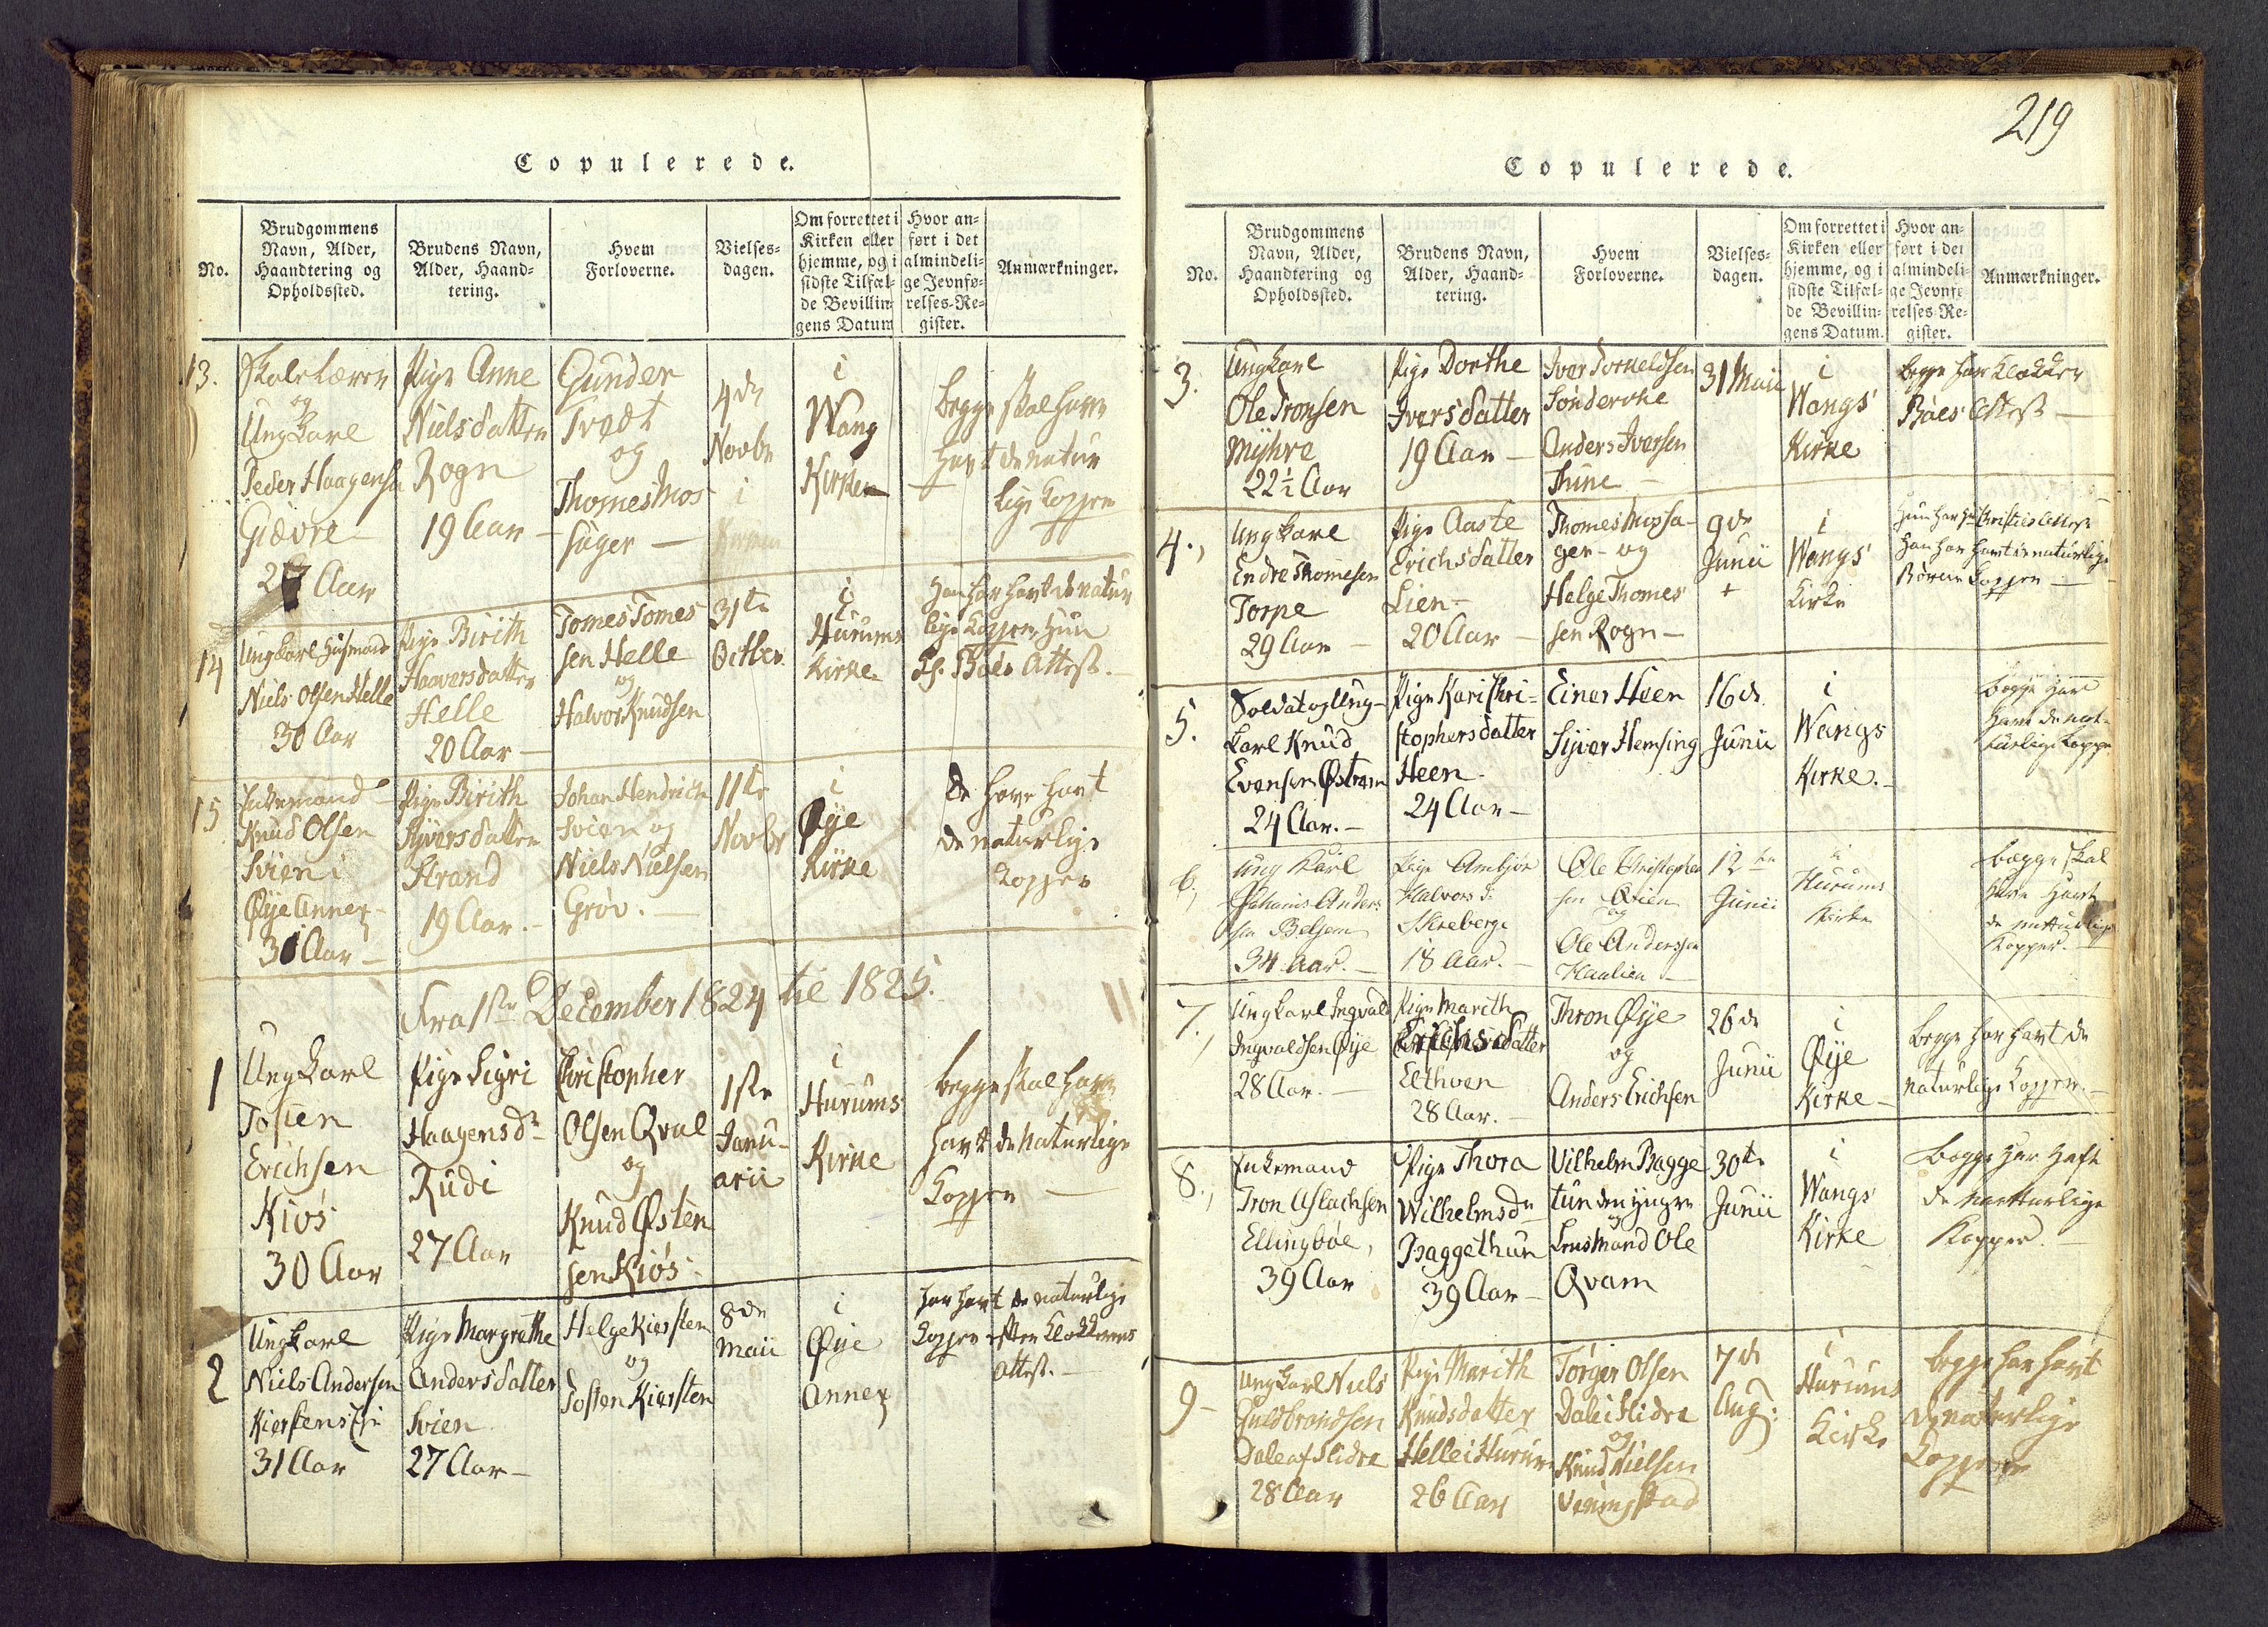 Copulerede.
No.
Brudgommens
Navn, Alder,
Haandtering og
Opholdssted.
Brudens Navn,
Alder, Haand-
tering.
Hvem
Forloverne.
Vielses-
dagen.
Om forrettet i
Kirken eller
hjemme, og i
sidste Tilfæl-
de Bevillin-
gens Datum
Hvor an-
ført i det
almindeli-
ge Jevnfø-
relses-Re-
gister.
Anmærkninger.
13.
Skolelærer
og
Ungkarl
Peder Haagensen
Giøvre
27 Aar
Pige Anne
Nielsdatter
Rogn
19 Aar
Gunder
Tvedt
og
Thomes Mos
sager
4de
Novbr
i
Wang
Kirke
begge skal have
havt de natur
lige Kopper
14
Ungkarl Husmand
Niels Olsen Helle
30 Aar
Pige Birith
Haaversdatter
Helle
20 Aar
Tomes Tomes
sen Helle
og
Halvor Knudsen
31te
Octbr.
i
Hurums
Kirke
Han har havt de natur
lige Kopper, Hun
Attest.
15
Enkemand
Knud Olsen
Svien i
Øye Annex
30 Aar
Pige Birith
Syversdatter
Strand
19 Aar.
Johan Hendrich
Svien og
Niels Nielsen
Grøv.
11te
Novbr
i
Øye
Kirke
de have havt
de naturlige
Kopper
Fra 1ste December 1824 til 1825.
1
Ungkarl
Tosten
Erichsen
Kiøs
30 Aar
Pige Sigri
Haagensdr
Rudi
27 Aar
Christopher
Olsen Qval
og
Knud Østen
sen Kiøs
1ste
Janu-
arii
i
Hurums
Kirke
begge skal have
havt de naturlige
Kopper
2
Ungkarl
Niels Andersen
Kierstens
31 Aar
Pige Margrethe
Andersdatter
Svien
27 Aar
Helge Kiersten
og
Tosten Kiersten
8de
Maii
i
Øye
Annex
har havt de naturlige
Kopper efter Klokkerens
Attest.
219
Copulerede.
No.
Brudgommens
Navn, Alder,
Haandtering og
Opholdssted.
Brudens Navn,
Alder, Haand-
tering.
Hvem
Forloverne.
Vielses-
dagen.
Om forrettet i
Kirken eller
hjemme, og i
sidste Tilfæl-
de Bevillin-
gens Datum.
Hvor an-
ført i det
almindeli-
ge Jevnfø-
relses-Re-
gister.
Anmærkninger.
3.
Ungkarl
Ole Tronsen
Myhre
22½ Aar
Pige Dorthe
Iversdatter
19 Aar
Iver Torkeldsen
Sønderoke
Anders Iversen
Thune
31 Maii
i
Wangs
Kirke
begge har Klokker
Baes Attest
4.
Ungkarl
Endre Thomesen
Torpe
29 Aar
Pige Aaste
Erichsdatter
Lien
20 Aar
Thomes Mossa-
ger og
Helge Thomes
sen Rogn
9de
Junii
+
i
Wangs
Kirke
Attest
Han har havt de naturlige
Kopper
5.
Soldat og Ung-
karl Knud
Evensen Østrem
24 Aar.
Pige Kari Chri-
stophersdatter
Heen
24 Aar
Einer Heen
Syver Hemsing
16de
Junii
i
Wangs
Kirke.
begge have
havt de nat-
turlige Kopper
6.
Ung Karl
Johanis Anders-
sen Belsem
34 Aar.
Pige Ambjør
Halvors D.
Skreberge
18 Aar.
Ole Christopher
sen Øvien
og
Ole Anderssen
Haalien
12te
Junii
i
Hurums
Kirke
begge skal
have havt
de naturlige
Kopper.
7.
Ungkarl Ingvald
Ingvaldsen Øye
28 Aar.
Pige Marith
Erichsdatter
Elthoen
28 Aar.
Thron Øye
og
Anders Erichsen
26de
Junii
i
Øye
Kirke
begge har havt de
naturlige Kopper.
8.
Enkemand
Tron Aslachsen
Ellingbøe,
39 Aar
Pige Thora
Wilhelmsdr
Baggethun
39 Aar
Vilhelm Bagge
tun den yngre
og
Lensmand Ole
Qvam
30te
Junii
i
Wangs
Kirke
begge har haft
de natturlige
Kopper.
9
Ungkarl Niels
Guldbrandsen
Dale af Slidre
28 Aar
Pige Marith
Knudsdatter
Helle i Hurum
26 Aar
Torger Olsen
Dale i Slidre
og
Knud Nielsen
Veningstad
7de
Aug:
i
Hurums
Kirke
begge har havt
de naturlige
Kopper